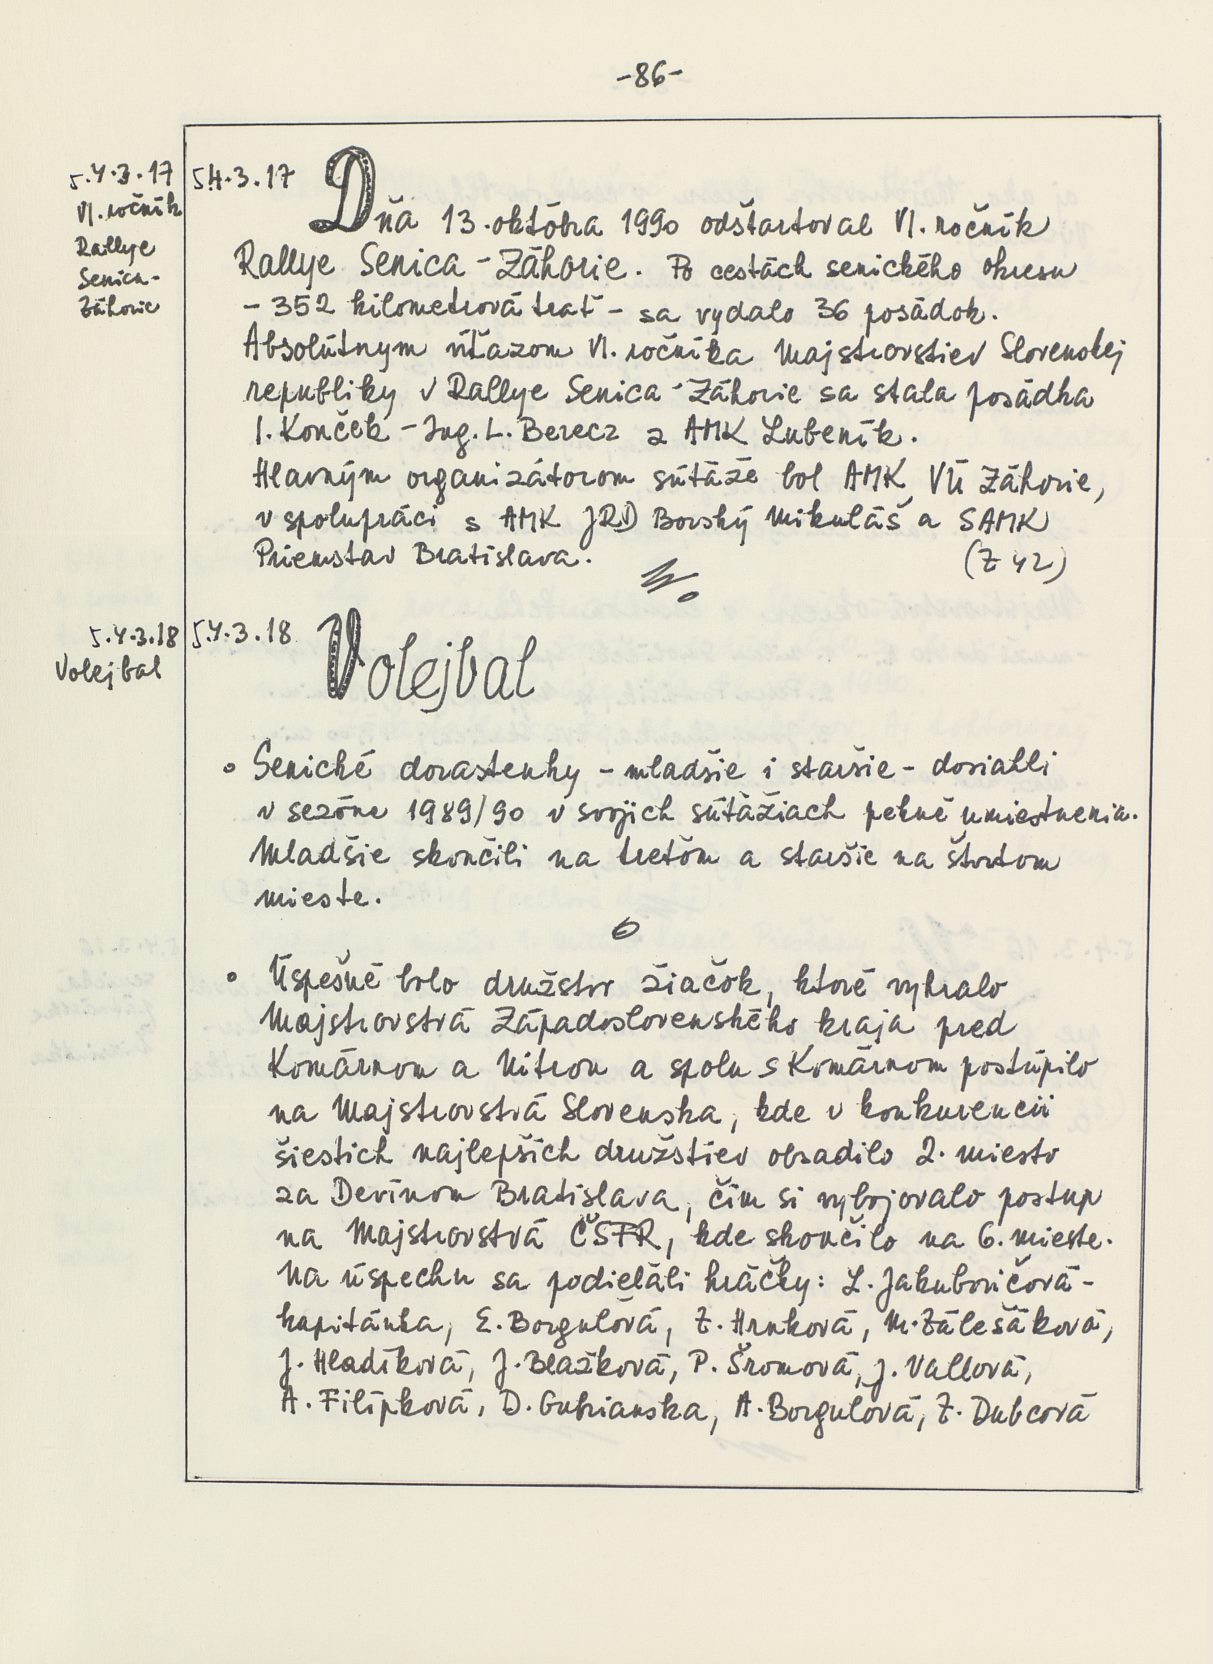 -86-
5.4.3.17
VI. ročník
Rallye
Senica-
Záhorie
5.4.3.17
Dňa 13. októbra 1990 odštartoval VI. ročník
Rallye Senica - Záhorie. Po cestách senického okresu
- 352 kilometrová trať - sa vydalo 36 posádok.
Absolútnym víťazom VI. ročníka Majstrovstiev Slovenskej
republiky v Rallye Senica - Záhorie sa stala posádka
I. Konček - Ing. L. Berecz z AMK Lubeník.
Hlavným organizátorom súťaže bol AMK VÚ Záhorie,
v spolupráci s AMK JRD Borský Mikuláš a SAMK
Priemstav Bratislava.
(Z 42)
5.4.3.18
Volejbal
5.4.3.18
Volejbal
Senické dorastenky - mladšie i staršie - dosiahli
v sezóne 1989/90 v svojich súťažiach pekné umiestnenia.
Mladšie skončili na treťom a staršie na štvrtom
mieste.
Úspešné bolo družstvo žiačok, ktoré vyhralo
Majstrovstvá Západoslovenského kraja pred
Komárnom a Nitrou a spolu s Komárnom postúpilo
na Majstrovstvá Slovenska, kde v konkurencii
šiestich najlepších družstiev obsadilo 2. miesto
za Devínom Bratislava, čím si vybojovalo postup
na Majstrovstvá ČSFR, kde skončilo na 6. mieste.
Na úspechu sa podieľali hráčky: L. Jakubovičová-
kapitánka, E. Borgulová, Z. Hrnková, M. Zálešáková,
J. Hladíková, J. Blažková, P. Šromová, J. Vallová,
A. Filípková, D. Gubrianska, A. Borgulová, Z. Dubcová